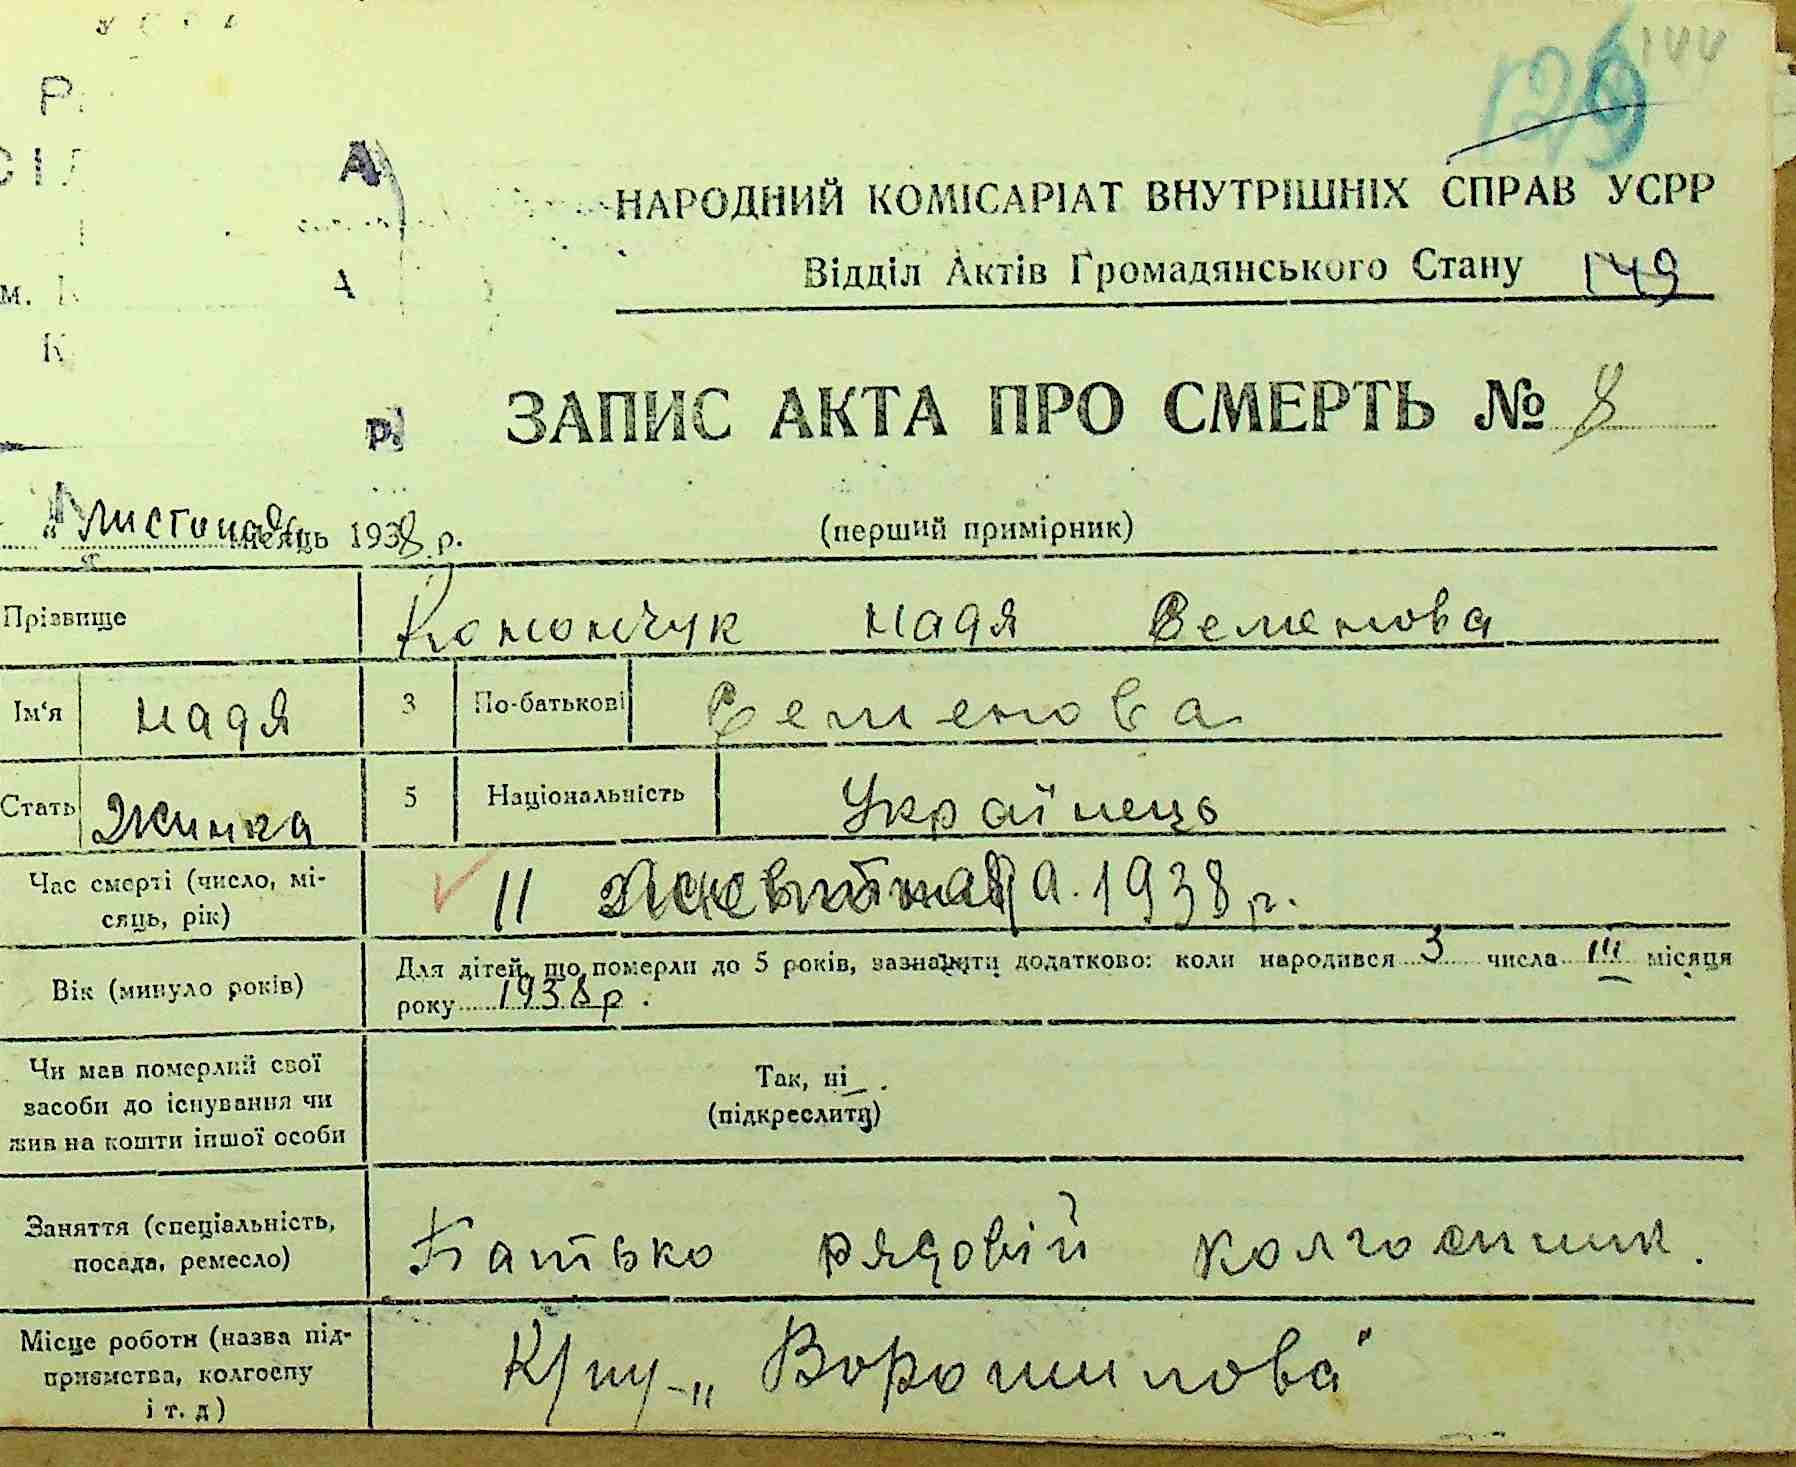 144
129
НАРОДНИЙ КОМІСАРІАТ ВНУТРІШНІХ СПРАВ УСРР
Відділ Актів Громадянського Стану 149
ЗАПИС АКТА ПРО СМЕРТЬ № 8
(перший примірник)
місяць 1938 р.
Прізвище Конончук Надя Семенова
Ім'я Надя 3 По-батькові Семенова
Стать Жинка 5 Національність Українець
Час смерті (число, мі-
сяць, рік) 11 1938 р.
Вік (минуло років) Для дітей, що померли до 5 років, зазначити додатково: коли народився 3 числа III місяця
року 1938 р.
Чи мав померлий свої
засоби до існування чи
жив на кошти іншої особи
Так, ні
(підкреслити)
Заняття (спеціальність,
посада, ремесло) Батько рядовій колгоспник.
Місце роботи (назва під-
приємства, колгоспу
і т. д) „Ворошилова"